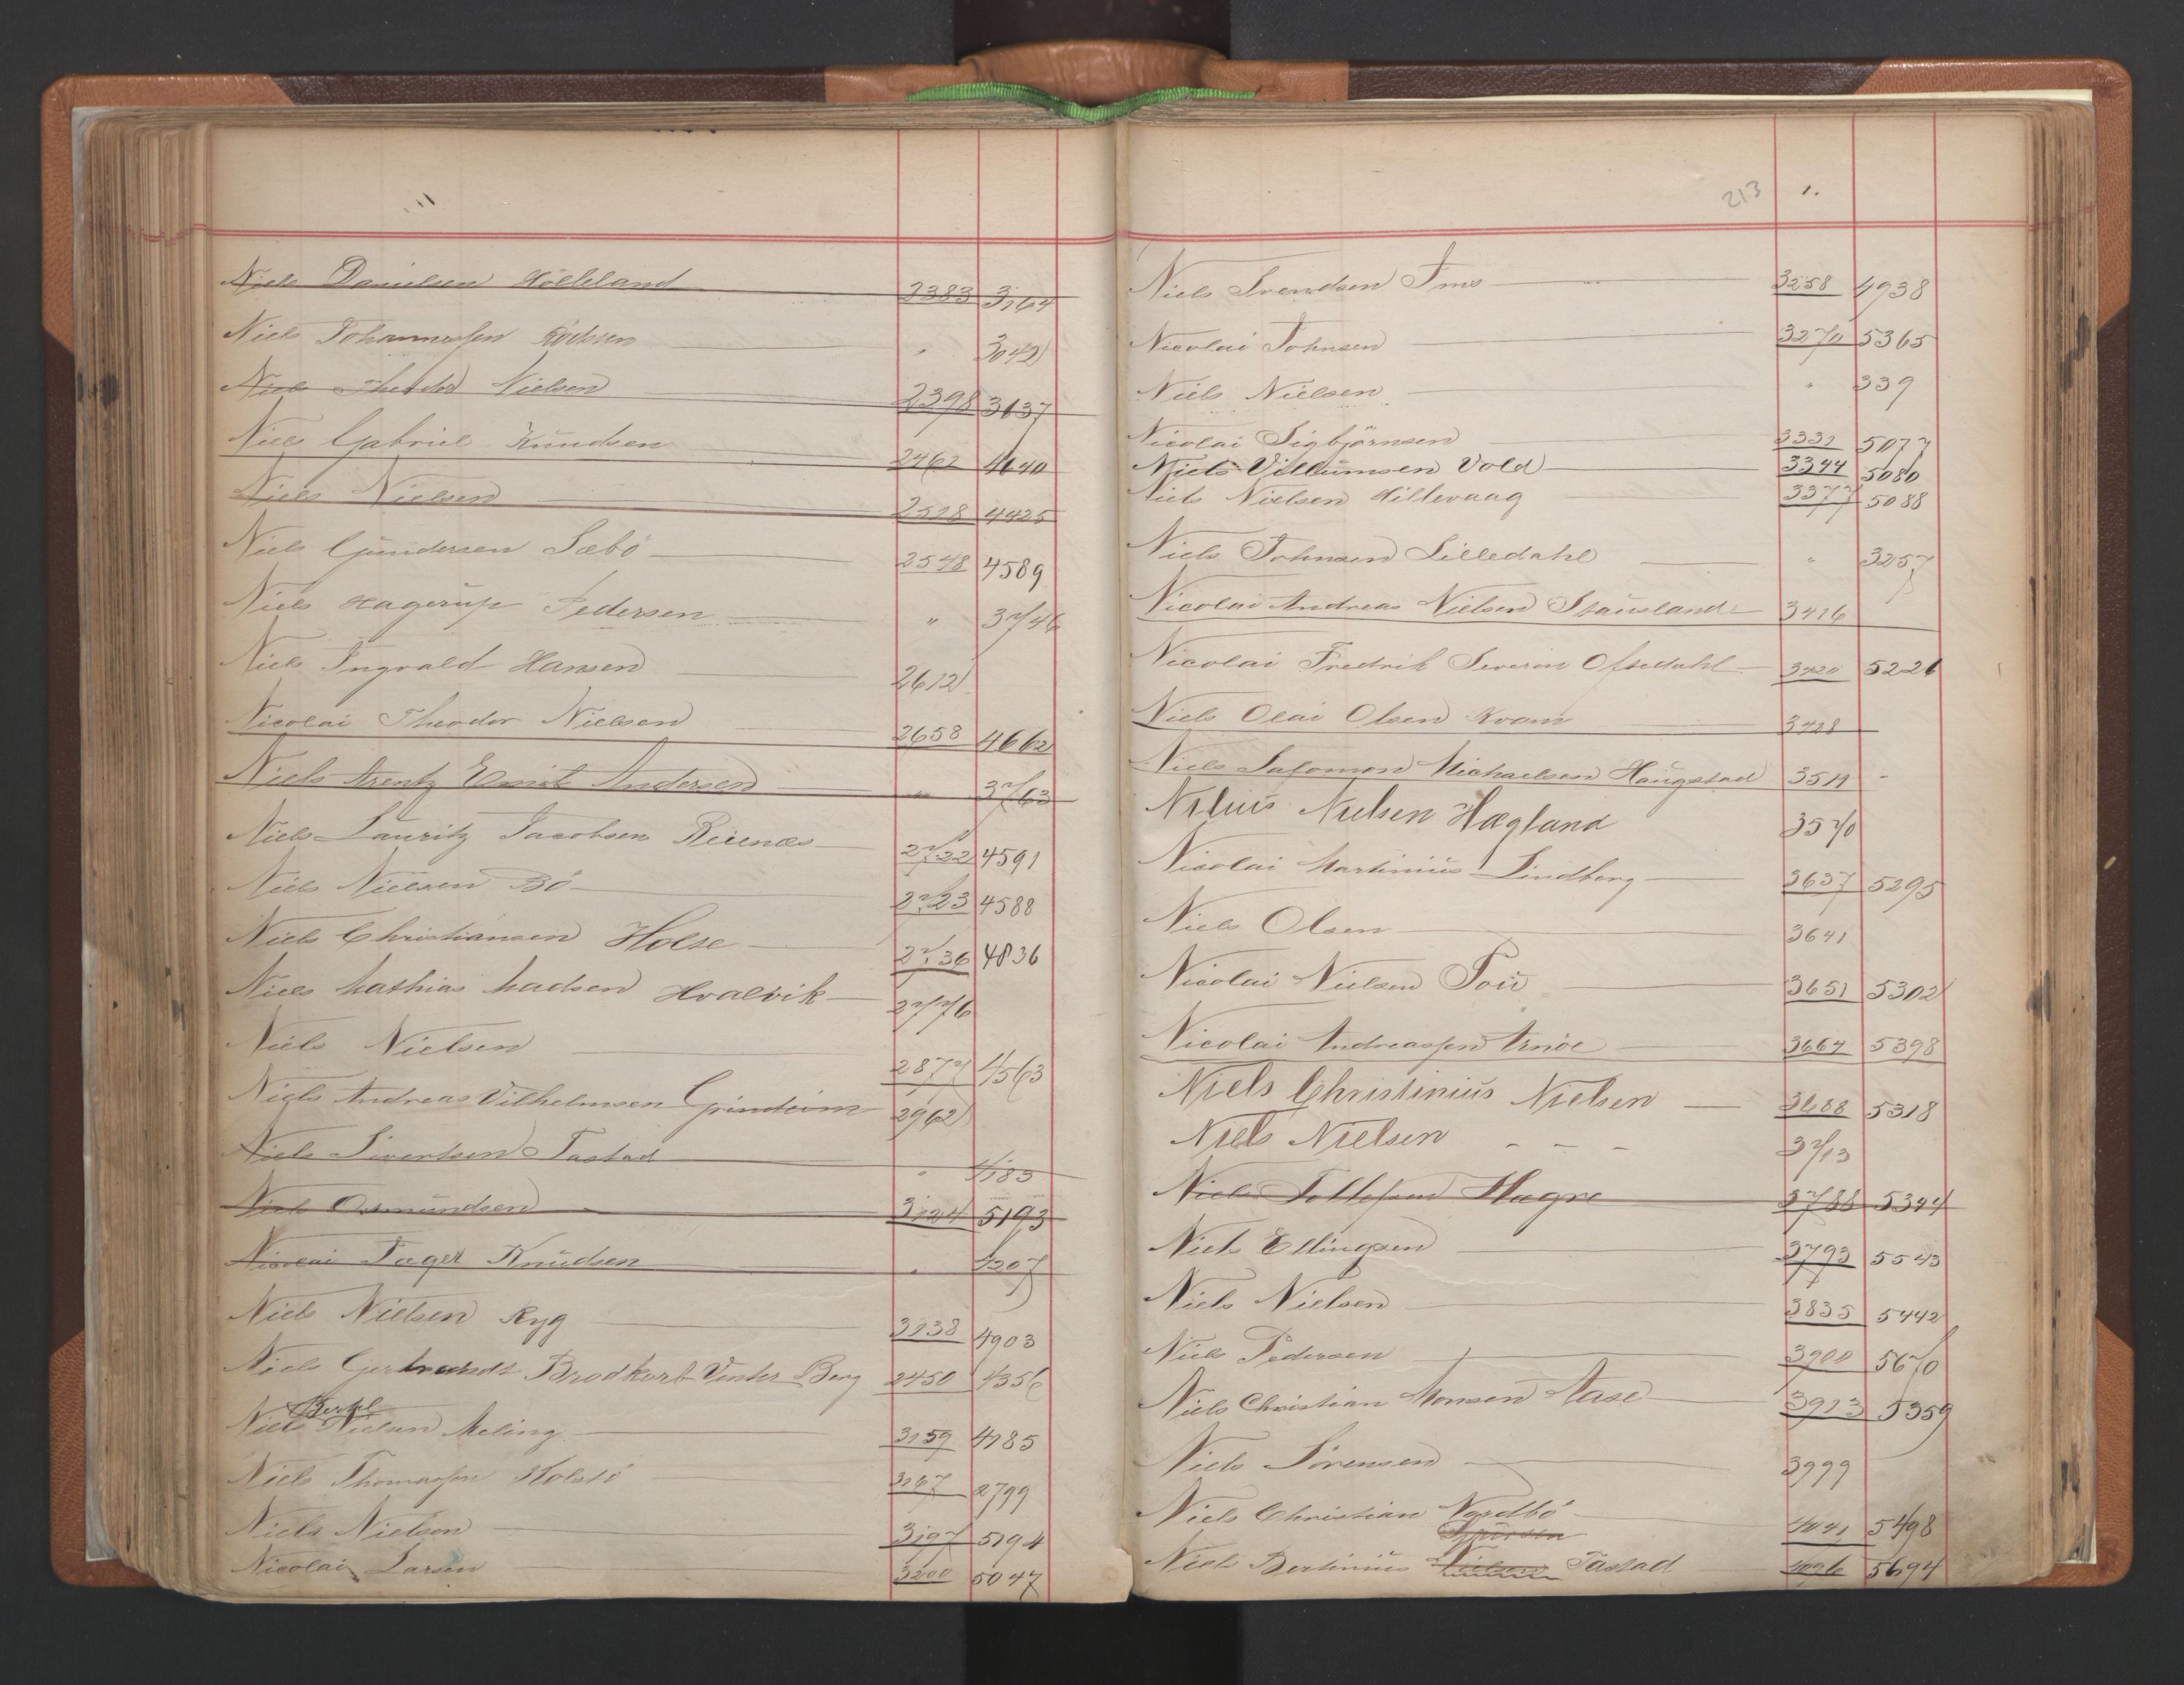 Niels Danielsen Hölleland 2383 3164
Niels Johannessen Rödsten " 3042
Niels Theodor Nielsen 2398 3637
Niels Gabriel Knudsen 2462 4640
Niels Nielsen 2518 4425
Niels Gundersen Sæbö 2548 4589
Niels Hagerup Pedersen " 3746
Niels Ingvald Hansen 2612
Nicolai Theodor Nielsen 2658 4662
Niels Arentz Emil Andersen " 3763
Niels Lauritz Jacobsen Reienæs 2722 4591
Niels Nielsen Bö 2723 4588
Niels Christiansen Holse 2736 4836
Niels Mathias Madsen Hvalvik 2776
Niels Nielsen 2877 4563
Niels Andreas Vilhelmsen Grindeim 2962
Niels Sivertsen Tastad " 4183
Niels Osmundsen 3124 5193
Nicolai Tager Knudsen " 4207
Niels Nielsen Ryg 3138 4903
Niels Gerhardt Brodkorb Vinter Berg 2450 4356
Bertel
Niels Nielsen Meling 3159 4185
Niels Thomassen Holstö 3167 2799
Niels Nielsen 3197 5194
Nicolai Larsen 3200 5047
213 1.
Niels Svendsen Ims 3258 4938
Nicolai Johnsen 3270 5365
Niels Nielsen " 339
Nicolai Sigbjörnsen 3331 5077
Niels Villumsen Vold 3344 5080
Niels Nielsen Hillevaag 3377 5088
Niels Johnsen Lilledahl " 3257
Nicolai Andreas Nielsen Stausland 3416
Nicolai Fredrik Severin Ofstedahl 3420 5221
Niels Olai Olsen Kvam 3428
Niels Salomon Michaelsen Haugstad 3511 "
Nilius Nielsen Hægland 3570
Nicolai Martinius Lindberg 3637 5295
Niels Olsen 3641
Nicolai Nielsen Tou 3651 5302
Nicolai Andreassen Arnöe 3664 5398
Niels Christinius Nielsen 3688 5318
Niels Nielsen 3713
Niels Tollefsen Hagre 3788 5344
Niels Ellingsen 3793 5543
Niels Nielsen 3835 5442
Niels Pedersen 3900 5670
Niels Christian Monsen Aase 3913 5359
Niels Sörensen 3999
Niels Christian Nordbö 4041 5498
Niels Bertinius Nielsen Tastad 4096 5694